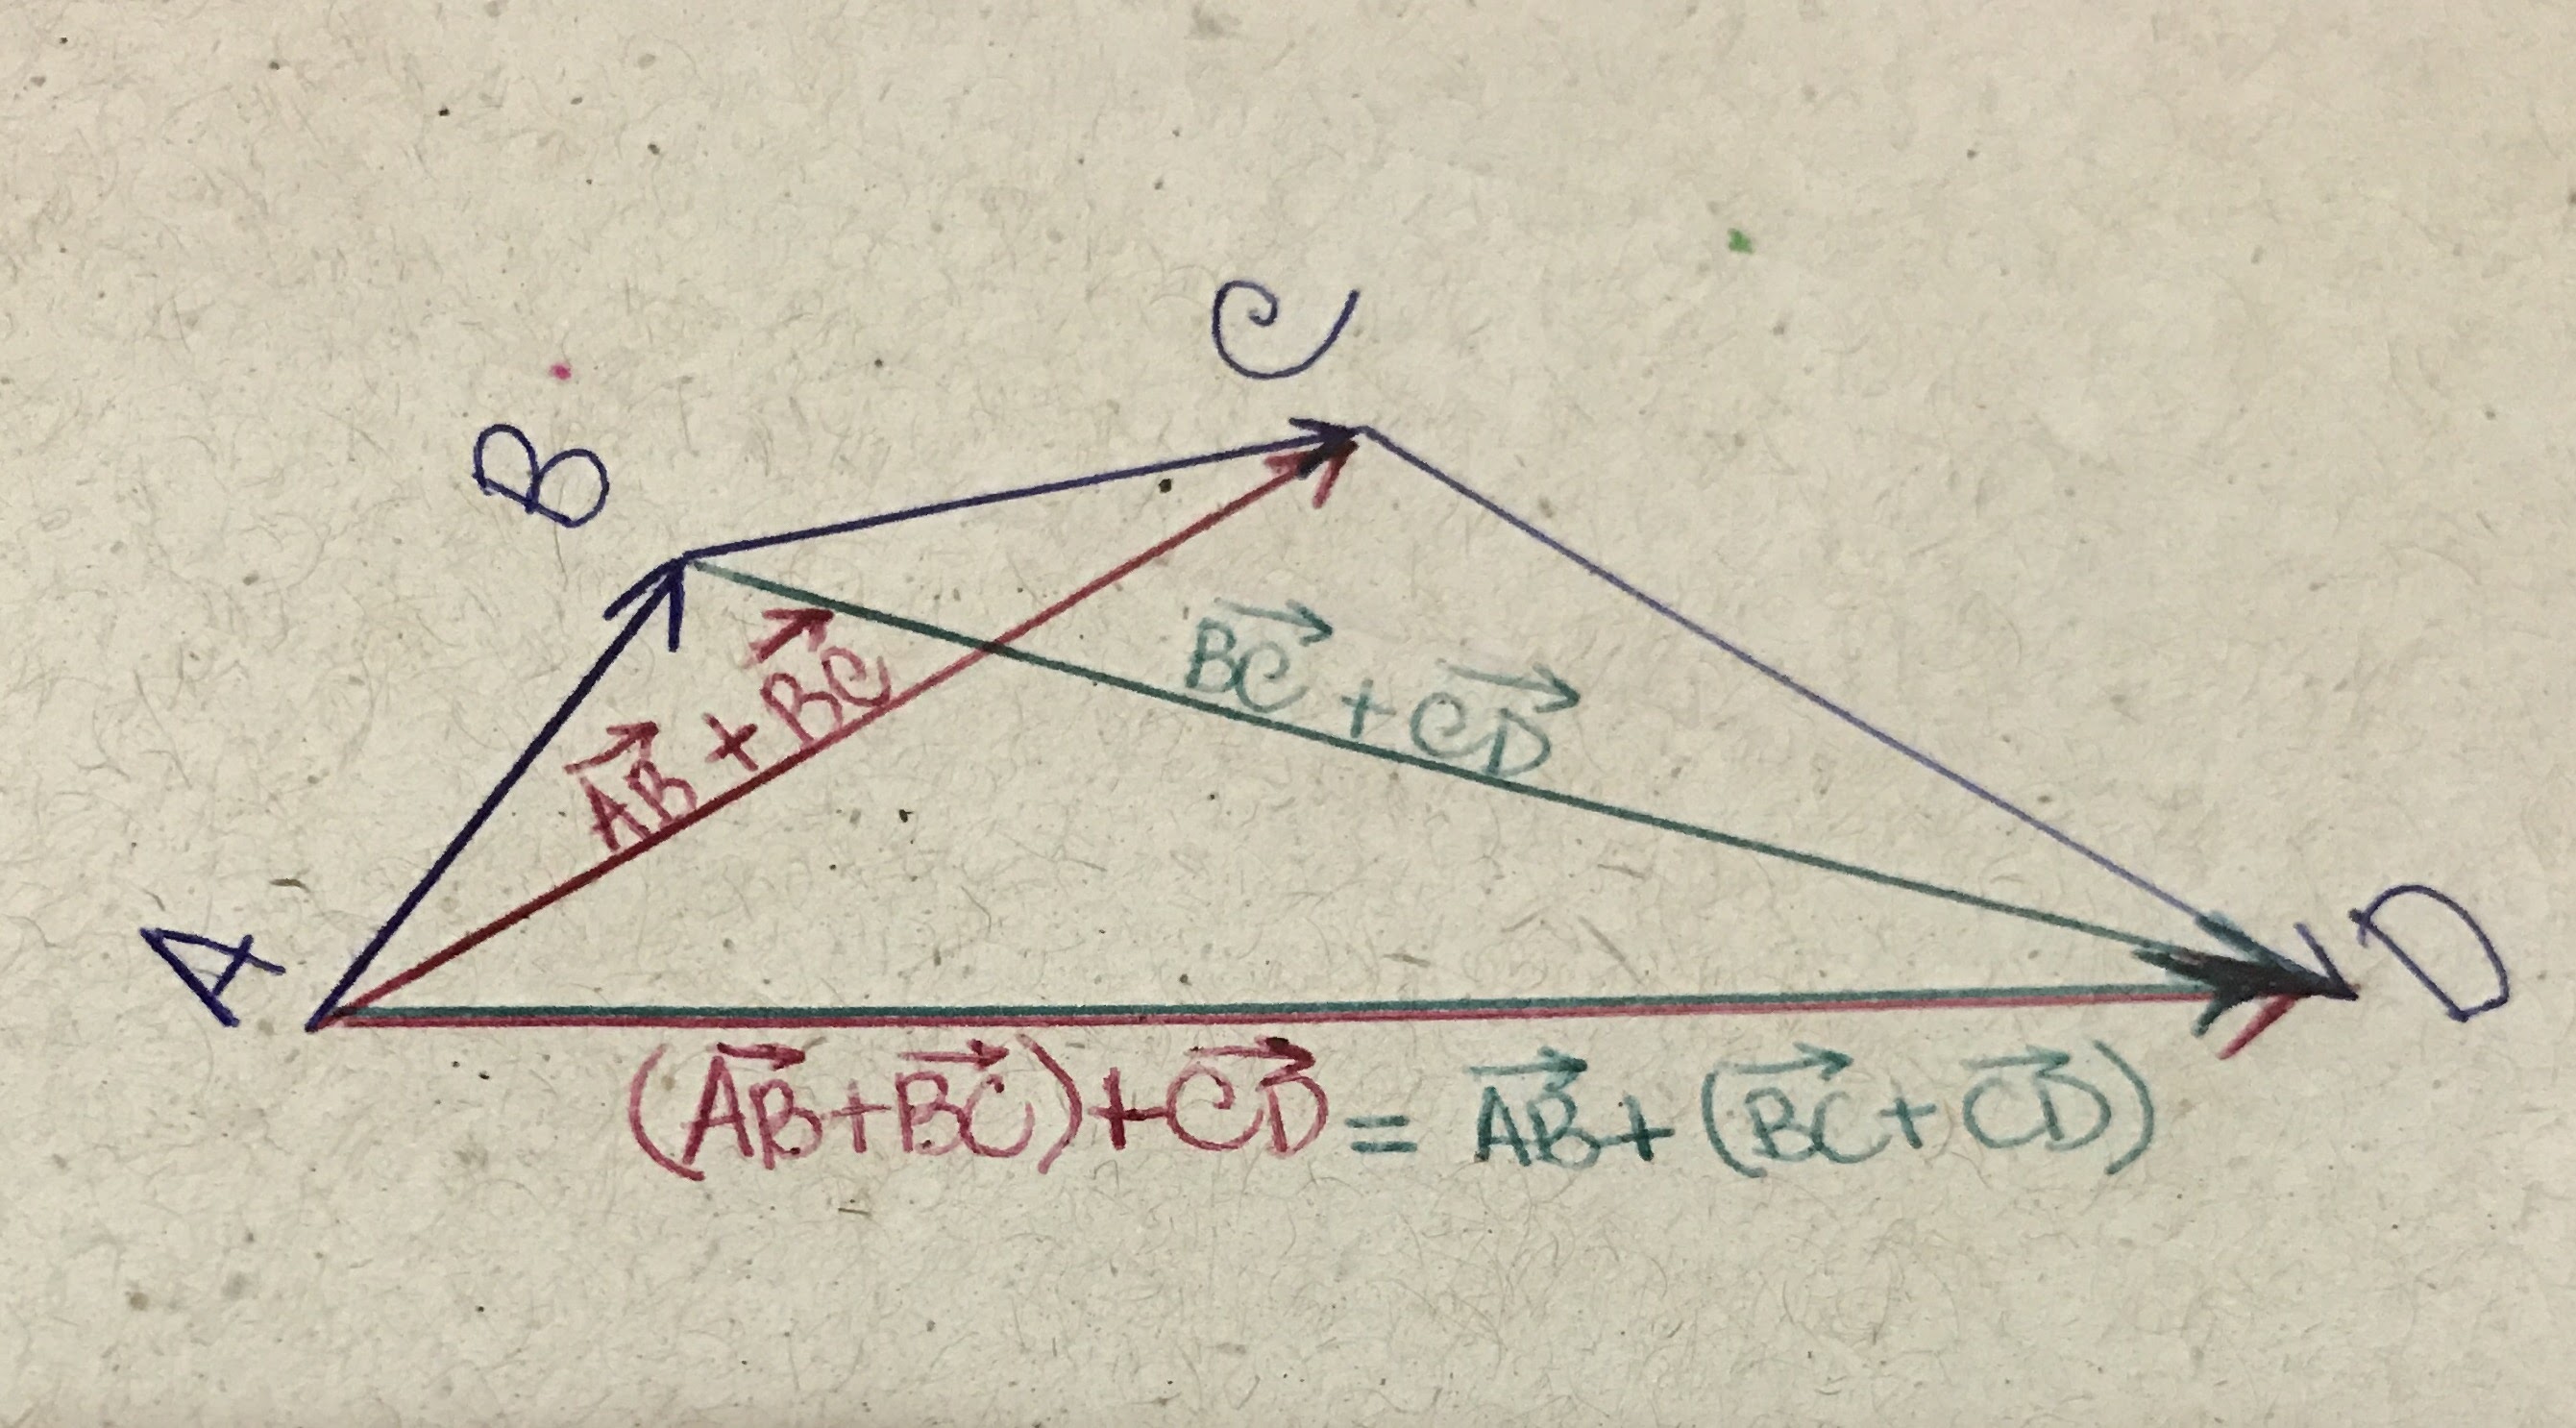 C
B
AB + BC
BC + CD
A
D
(AB+BC)+CD = AB+(BC+CD)